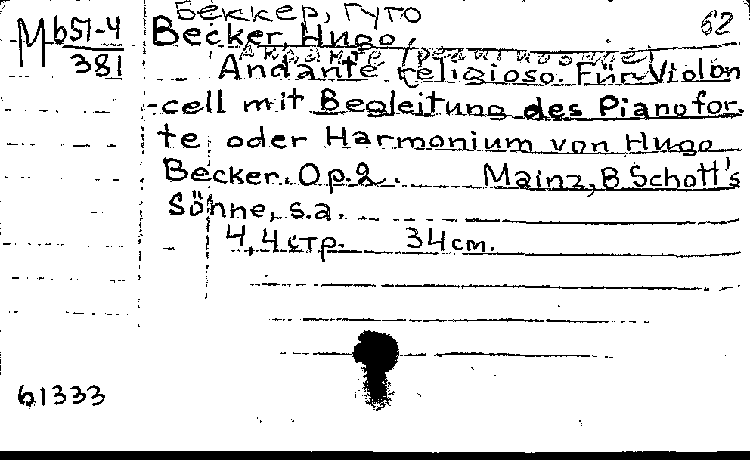 Беккер, Гуго
62
М b51-4
381
Becker Hugo
Анданте (религиозное)
Andante religioso. Für Violon
-cell mit Begleitung des Pianofor-
te oder Harmonium von Hugo
Becker. Op.2. Mainz, B. Schott's
Söhne, s.a.
4,4 стр. 34 cm.
61333